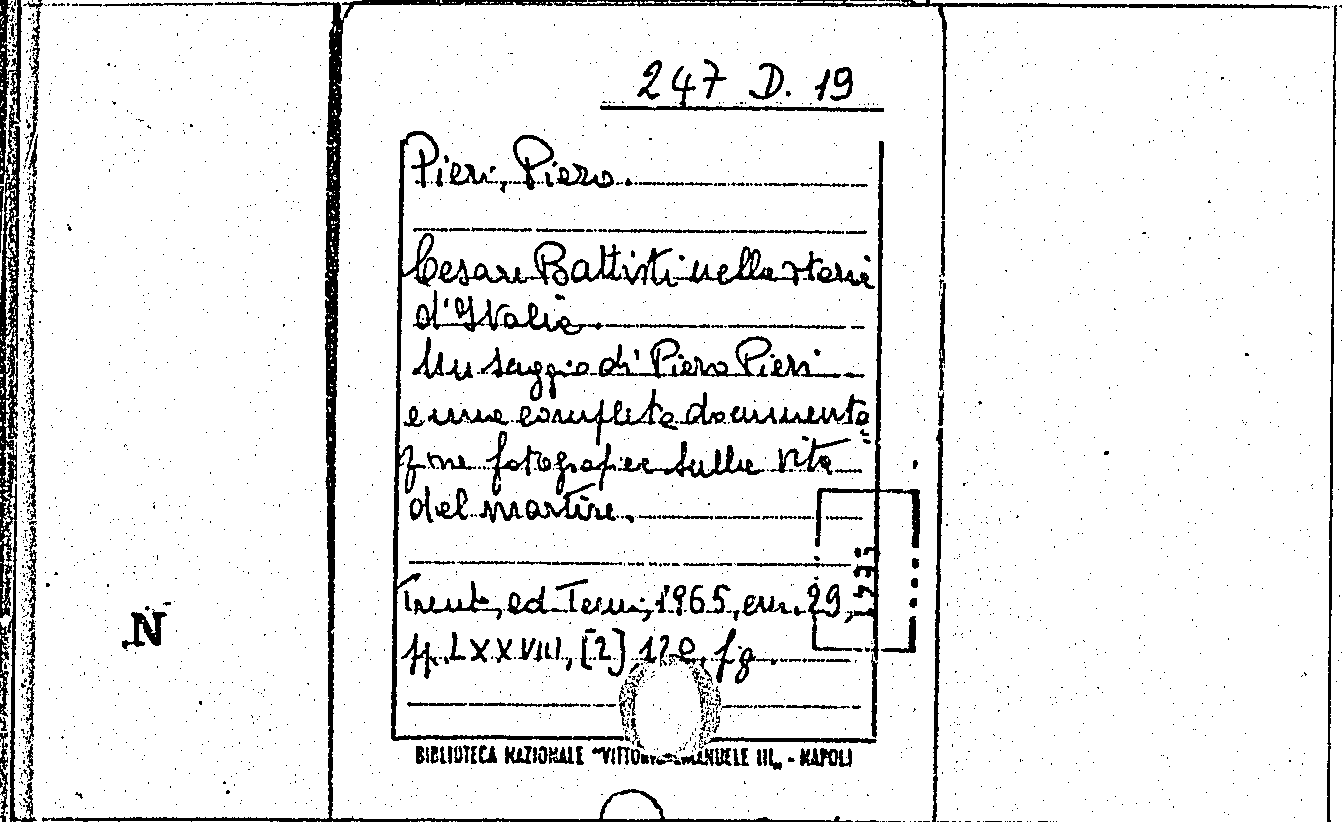 247 D. 19
Pieri, Piero.
Cesare Battisti nella storia
d'Italia.
Un saggio di Piero Pieri
e una completa documenta
zione fotografica sulla vita
del martire.
Trento, ed Temi, 1965, cm. 29,
pp. LXXVIII, [2] 120, fig
N
BIBLIOTECA NAZIONALE "VITTORIO EMANUELE III„ - NAPOLI